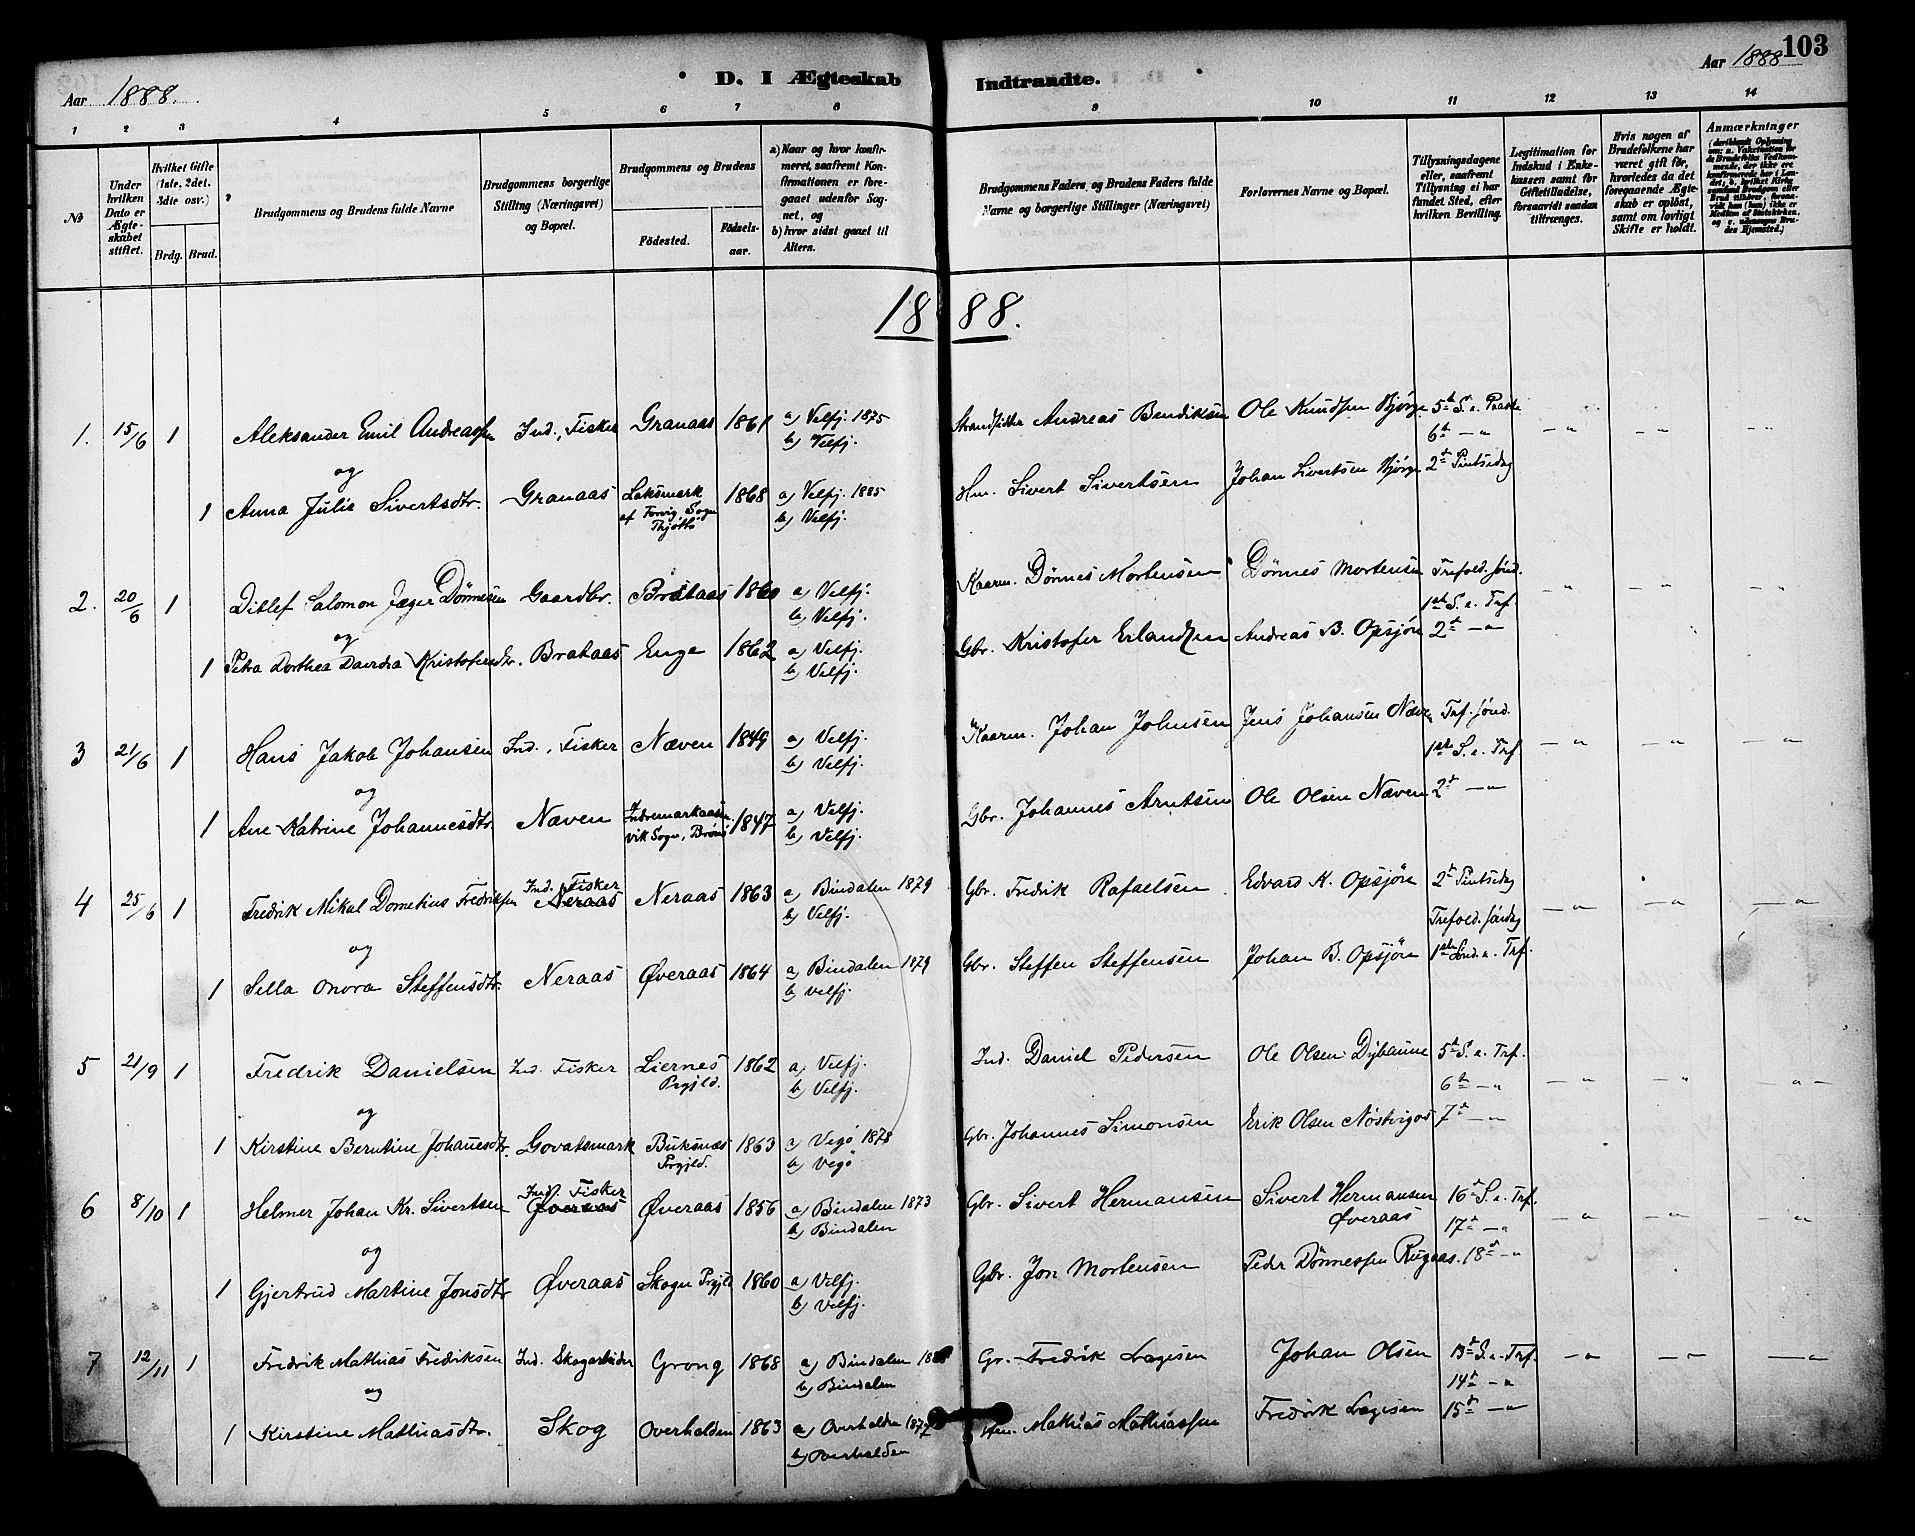 Aar 1888.
D. I Ægteskab Indtrandte.
Aar 1888 103
1 2 3 4 5 6 7 8 9 10 11 12 13 14
No
Under hvilken Dato er Ægteskabet stiftet.
Hvilket Gifte (1ste, 2det, 3die osv.)
Brdg. Brud.
Brudgommens og Brudens fulde Navne
Brudgommens borgerlige Stilling (Næringsvei) og Bopæl.
Brudgommens og Brudens
Födested.
Födselsaar.
a) Naar og hvor konfirmeret, saafremt Konfirmationen er foregaaet udenfor Sognet, og
b) hvor sidst gaaet til Alters.
Brudgommens Faders, og Brudens Faders fulde Navne og borgerlige Stillinger (Næringsvei)
Forlovernes Navne og Bopæl.
Tillysningsdagene eller, saafremt Tillysning ei har fundet Sted, efter hvilken Bevilling.
Legitimation for Indskud i Enkekassen samt for Giftetilladelse, forsaavidt saadan tiltrænges.
Hvis nogen af Brudefolkene har været gift för, hvorledes da det foregaaende Ægteskab er oplöst, samt om lovligt Skifte er holdt.
Anmærkninger
1888.
1. 15/6 1 Aleksander Emil Andreassen Ind., Fisker Granaas 1861 a) Velfj. 1875 b) Velfj. Strandsidder Andreas Bendiksen Ole Knudsen Bjørge 5te S. e. Paaske 6te — " — " — " — "
og
1 Anna Julie Sivertsdtr. Granaas Laksmark af Forvig Sogn Thjøttö 1868 a) Velfj. 1885 b) Velfj. Hm. Sivert Sivertsen Johan Sivertsen Bjørge 2den Pintsedag
2. 20/6 1 Ditlef Salomon Jæger Dönnesen Gaardbr. Brataas 1860 a) Velfj. b) Velfj. Kaarm. Dönnes Mortensen Dönnes Mortensen Trefold. Sönd. 1ste S. e. Trf. — " — " — "
og
1 Petra Dorthea Davida Kristofersdtr. Brataas Enge 1862 a) Velfj. b) Velfj. Gbr. Kristofer Erlandsen Andreas B. Opsjön 2den — "
3 21/6 1 Hans Jakob Johansen Ind., Fisker Næven 1849 a) Velfj. b) Velfj. Kaarm. Johan Johnsen Jens Johansen Næven Trf. Sönd. 1ste S. e. Trf — " — " — "
og
1 Ane Katrine Johannesdtr. Næven Indremarkaasen Vik Sogn, Brönö 1847 a) Velfj. b) Velfj. Gbr. Johannes Arntsen Ole Olsen Næven 2den — "
4 25/6 1 Fredrik Mikal Dometius Fredriksen Ind. Fisker Neraas Neraas 1863 a) Bindalen 1879 b) Velfj. Gbr. Fredrik Rafaelsen Edvard K. Opsjön 2den Pintsedag Trefold. Söndag — " — " — "
og
1 Sella Onora Steffensdtr. Neraas Øveraas 1864 a) Bindalen 1879 b) Velfj. Gbr. Steffen Steffensen Johan B. Opsjön 1ste Sönd. e. Trf.
5 21/9 1 Fredrik Danielsen Ind. Fisker Liernes Prgjld. 1862 a) Velfj. b) Velfj. Ind. Daniel Pedersen Ole Olsen Dybaune 5te S. e. Trf. 6te — " — " — " — "
og
1 Kirstine Berntine Johanesdtr. Govatsmark Buksnæs Prgjld. 1863 a) Vegö 1878 b) Vegö Gbr. Johannes Simonsen Erik Olsen Nöstvigos 7de — "
6 8/10 1 Helmer Johan Kr. Sivertsen Ind. Fisker Øveraas Øveraas 1856 a) Bindalen 1873 b) Bindalen Gbr. Sivert Hermansen Sivert Hermansen Øveraas 16de S. e. Trf. 17de — " — " — " — "
og
1 Gjertrud Martine Jonsdtr Øveraas Skogn Prgjld 1860 a) Velfj. b) Velfj. Gbr. Jon Mortensen Peder Dönnessen Rugaas. 18de — "
7 12/11 1 Fredrik Mathias Fredriksen Ind. Skogarbeider Grong 1868 a) Bindalen b) Bindalen Gr. Fredrik Lagesen Johan Olsen 13de S. e. Trf. 14de — " — " — " — "
og
1 Kirstine Mathiasdtr. Skog Overhalden 1863 a) Overhalden 1877 b) Overhalden Mathias Mathiassen Fredrik Lagesen 15de — "